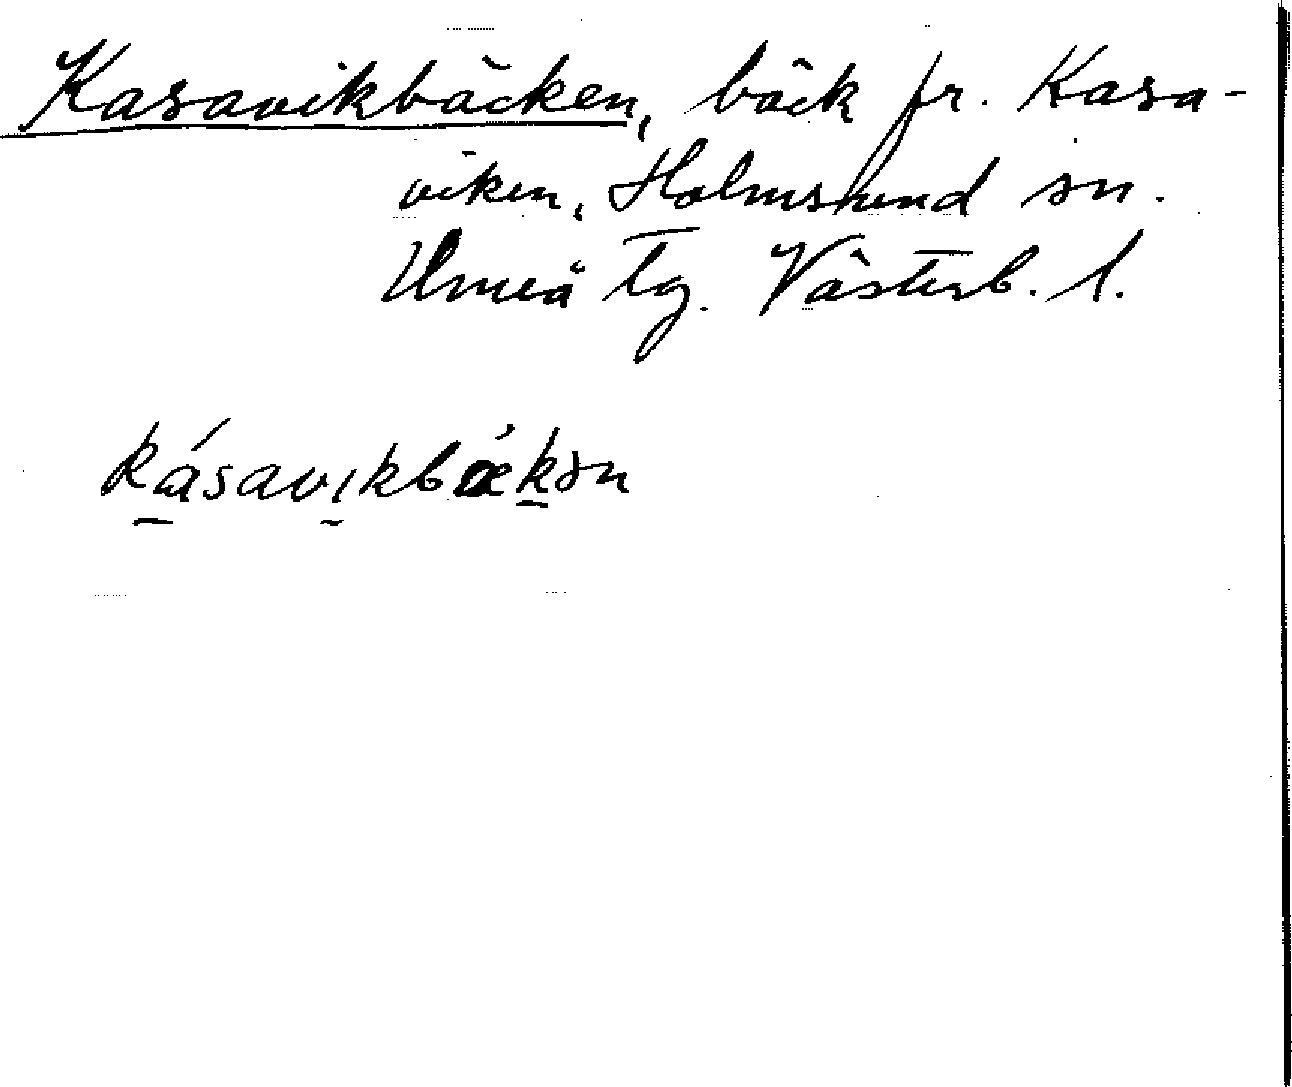 Kasavikbäcken, bäck fr. Kasa-
viken, Holmsund sn.
Umeå tg. Västerb. l.
kásavıkbǽkən